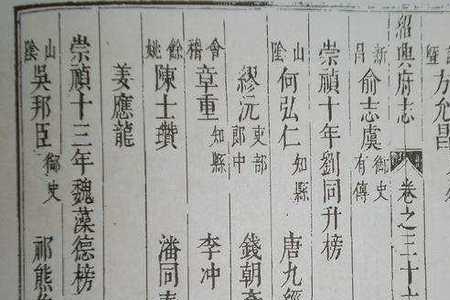 暨方允昌
紹興府志 卷之三十
新昌俞志虞御史有傳
崇禎十年劉同升榜
山陰何弘仁知縣 唐九經
繆沅吏部郎中 錢朝
會稽章重知縣 李冲
餘姚陳士瓚 潘同春
姜應龍
崇禎十三年魏藻德榜
山陰吳邦臣御史 祁熊